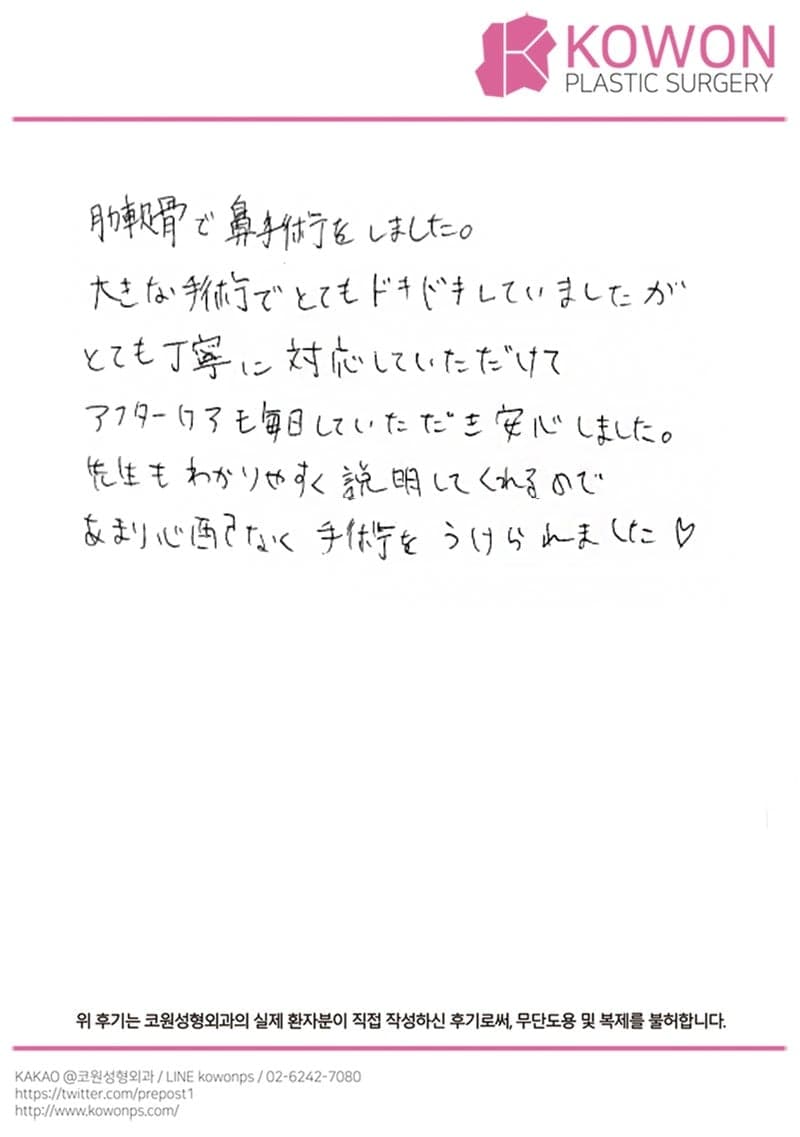 KOWON
PLASTIC SURGERY
肋軟骨で鼻手術をしました。
大きな手術でとてもドキドキしていましたが
とても丁寧に対応していただけて
アフターケアも毎日していただき安心しました。
先生もわかりやすく説明してくれるので
あまり心配なく手術をうけられました♡
위 후기는 코원성형외과의 실제 환자분이 직접 작성하신 후기로써, 무단도용 및 복제를 불허합니다.
KAKAO @코원성형외과 / LINE kowonps / 02-6242-7080
https://twitter.com/prepost1
http://www.kowonps.com/